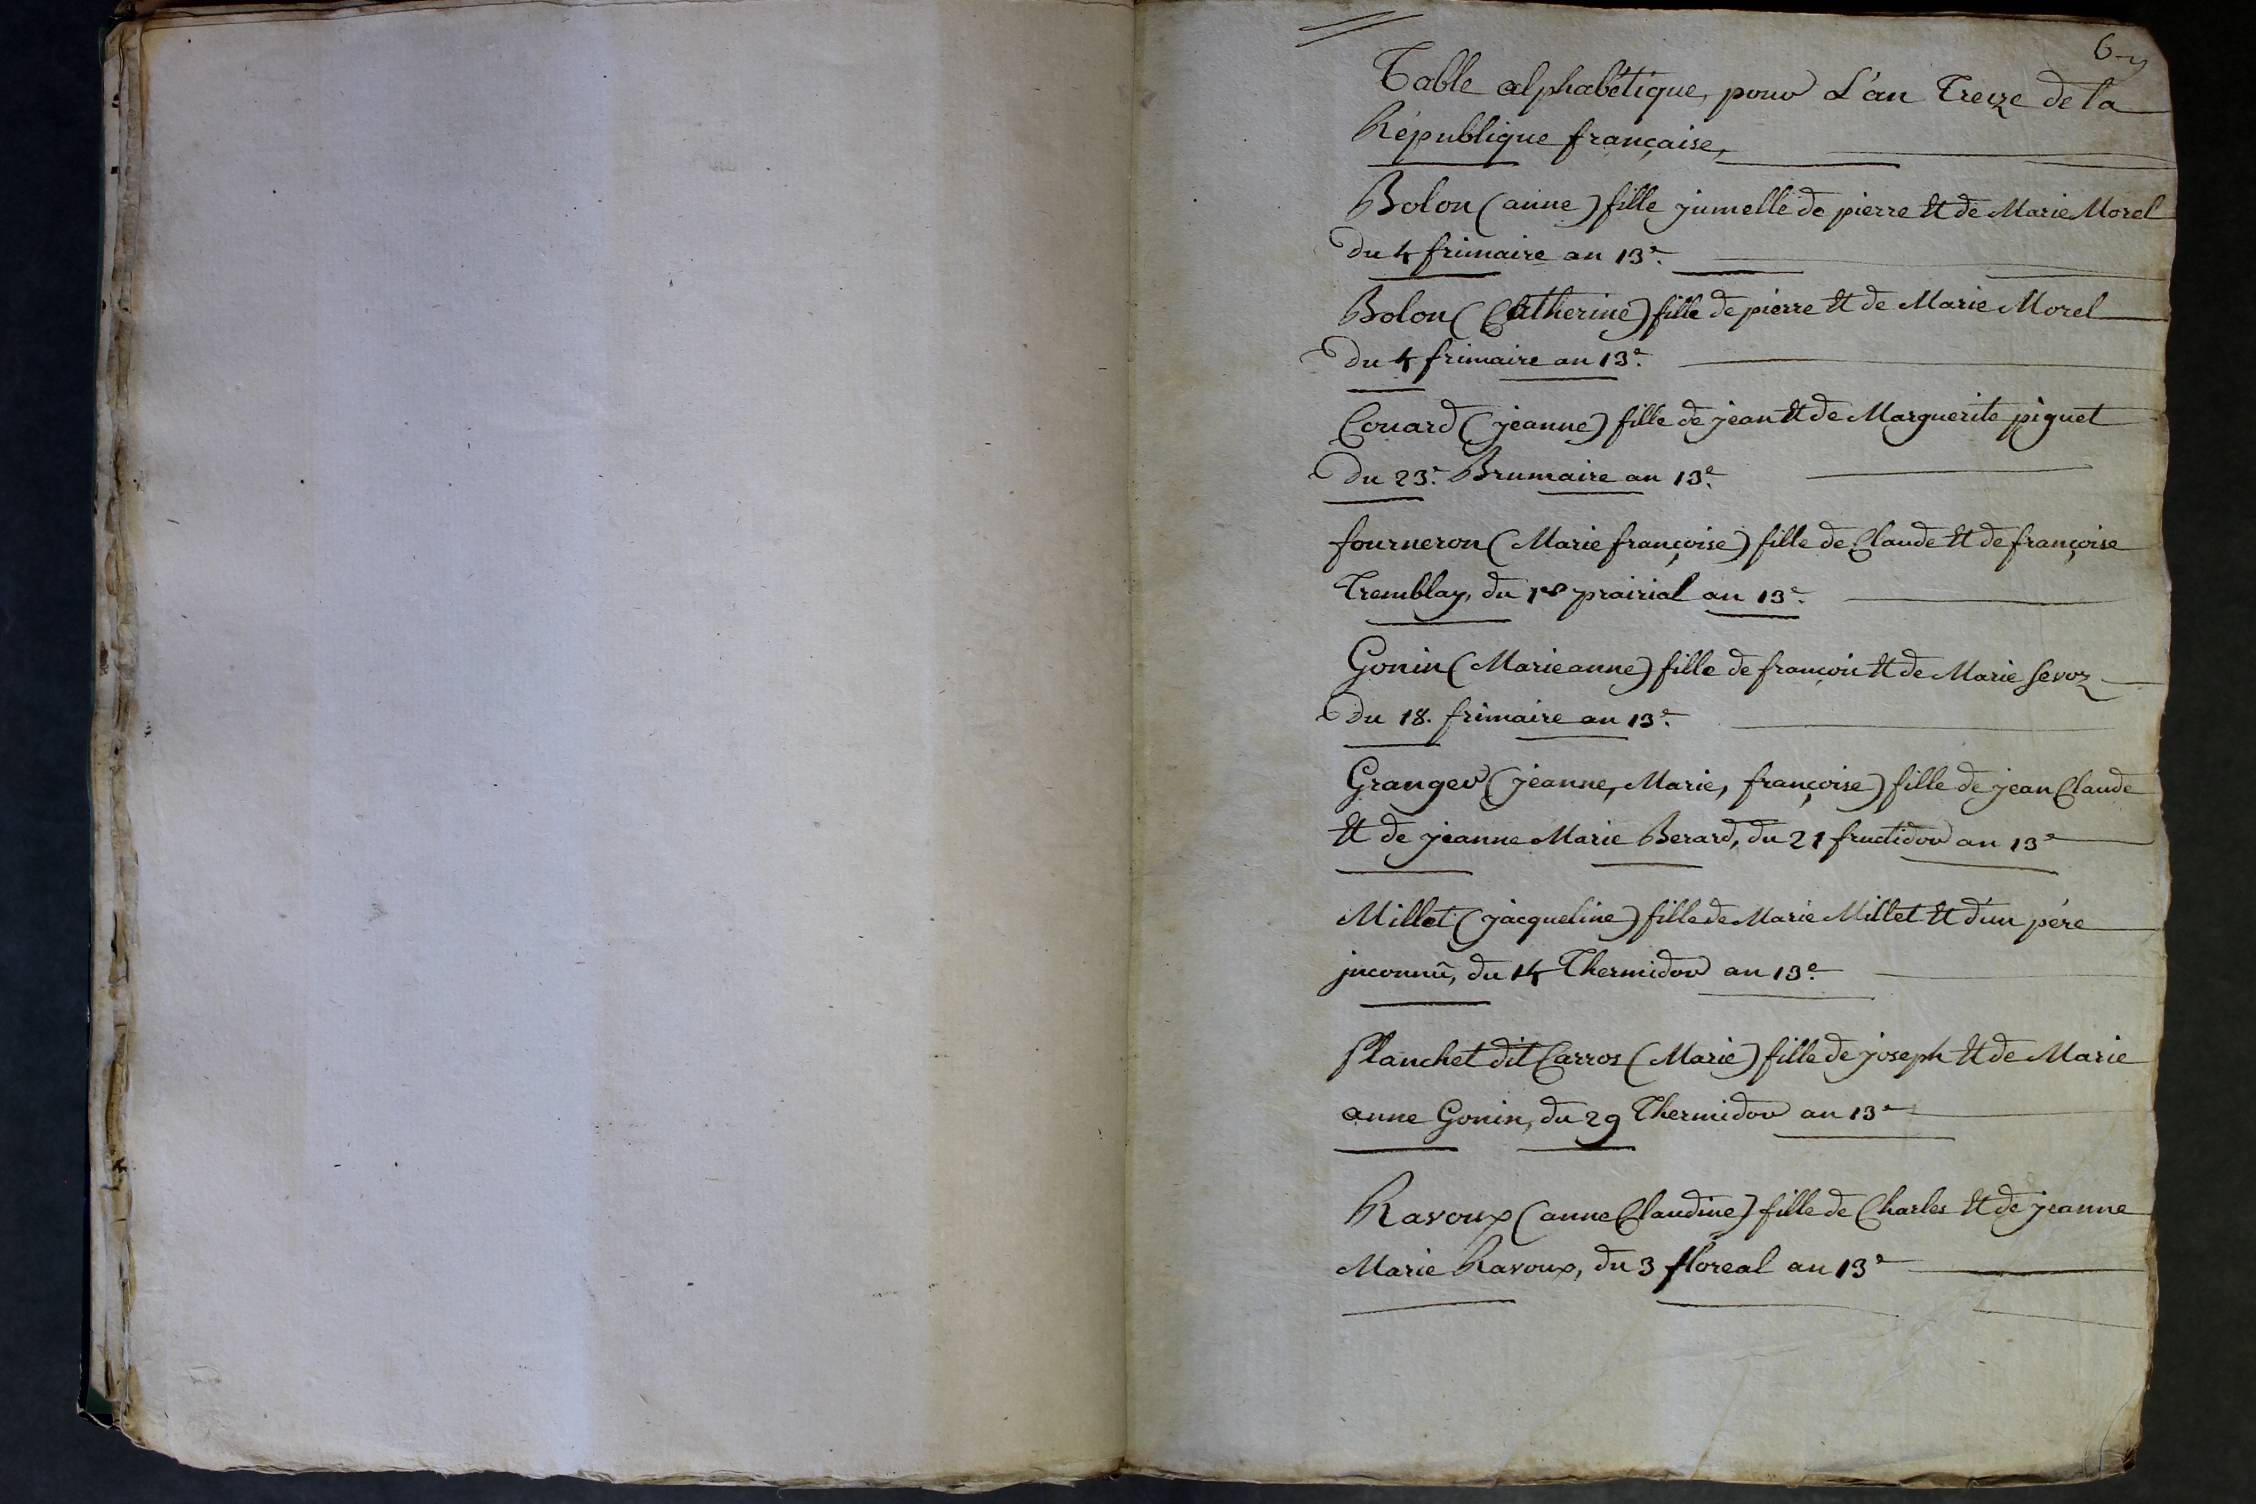 Table alphabétique, pour L'an Treize de la
République française,
Bolon (anne) fille jumelle de pierre et de Marie Morel
du 4 frimaire an 13e.
Bolon (Catherine) fille de pierre et de Marie Morel
du 4 frimaire an 13e.
Couard (jeanne) fille de jean et de Marguerite piguet
du 23e. Brumaire an 13e.
fourneron (Marie françoise) fille de Claude et de françoise
Tremblay, du 1er prairial an 13e.
Gonin (Marieanne) fille de françois et de Marie Sevoz
du 18. frimaire an 13e.
Granger (jeanne, Marie, françoise) fille de jean Claude
et de jeanne Marie Berard, du 21 fructidor an 13e
Millet (jacqueline) fille de Marie Millet et d'un pére
jnconnũ, du 14 Thermidor an 13e.
Planchet dit Carros (Marie) fille de joseph et de Marie
anne Gonin, du 29 Thermidor an 13e
Ravoux (anne Claudine) fille de Charles et de jeanne
Marie Ravoux, du 3 floreal an 13e